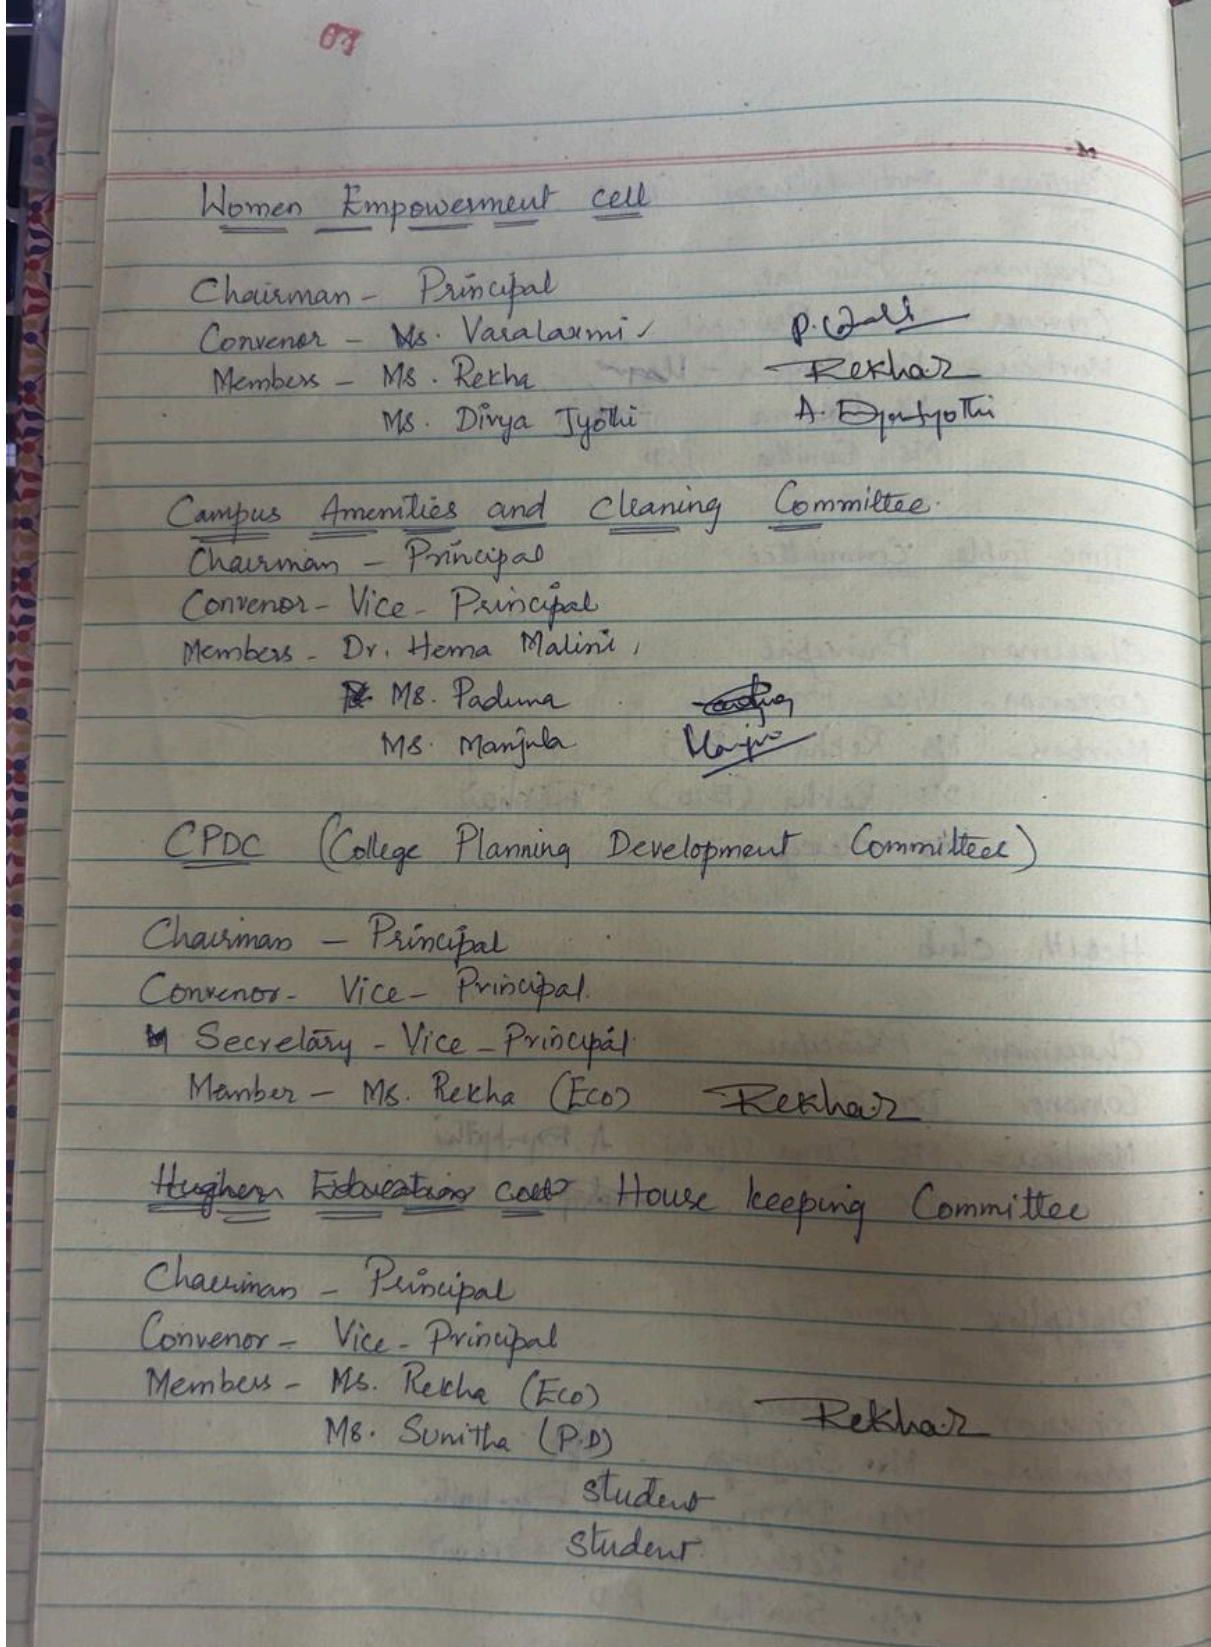 07
Women Empowerment cell
Chairman - Principal
Convenor - Ms. Varalaxmi
Members - Ms. Rekha Rekha.R
Ms. Divya Jyothi A. Divyajyothi
Campus Amenities and Cleaning Committee.
Chairman - Principal
Convenor - Vice - Principal
Members - Dr. Hema Malini,
Ms. Paduna
Ms. Manjula
CPDC (College Planning Development Committee)
Chairman - Principal
Convenor - Vice - Principal.
Secretary - Vice - Principal
Member - Ms. Rekha (Eco) Rekha.R
Hugher Education cell House keeping Committee
Chairman - Principal
Convenor - Vice - Principal
Members - Ms. Rekha (Eco) Rekha.R
Ms. Sunitha (P.D)
student
student